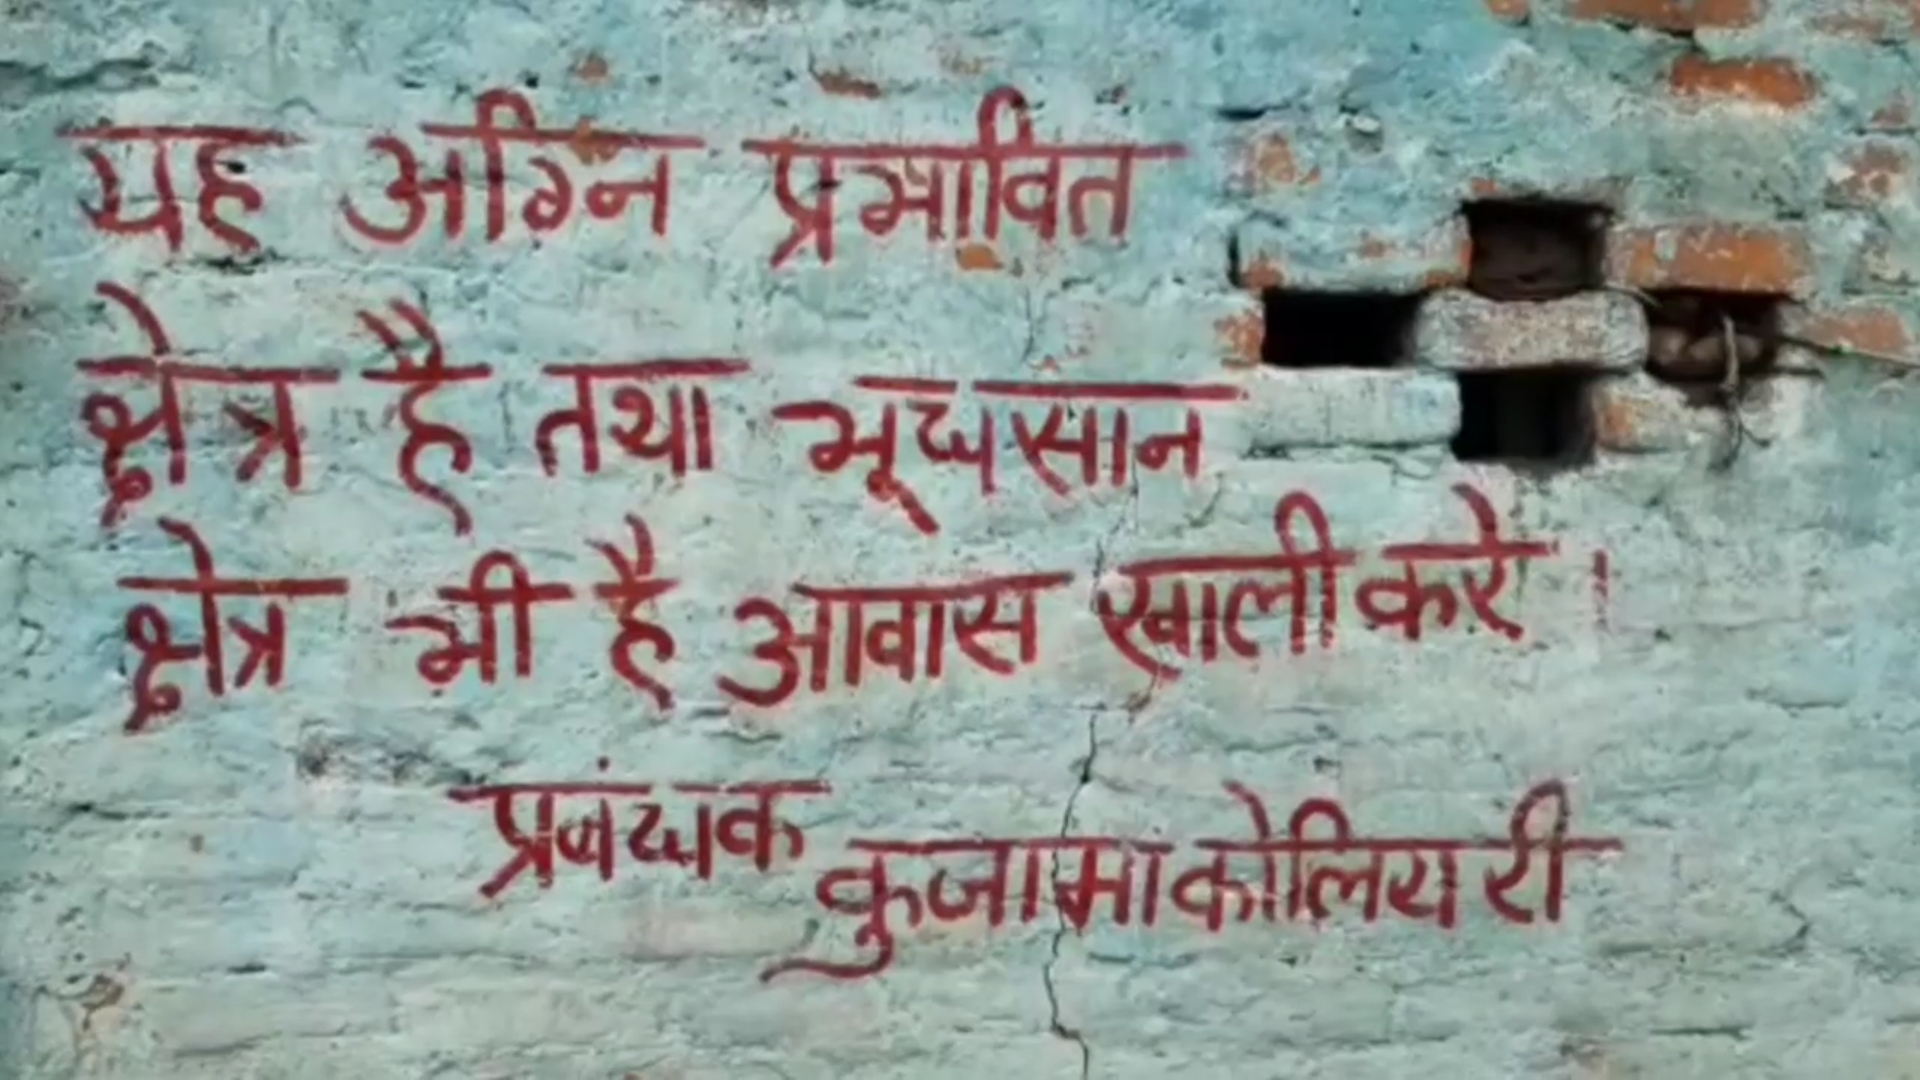 यह अग्नि प्रभावित
क्षेत्र है तथा भूधसान
क्षेत्र भी है आवास खाली करे ।
प्रबंधक
कुजामा कोलियरी